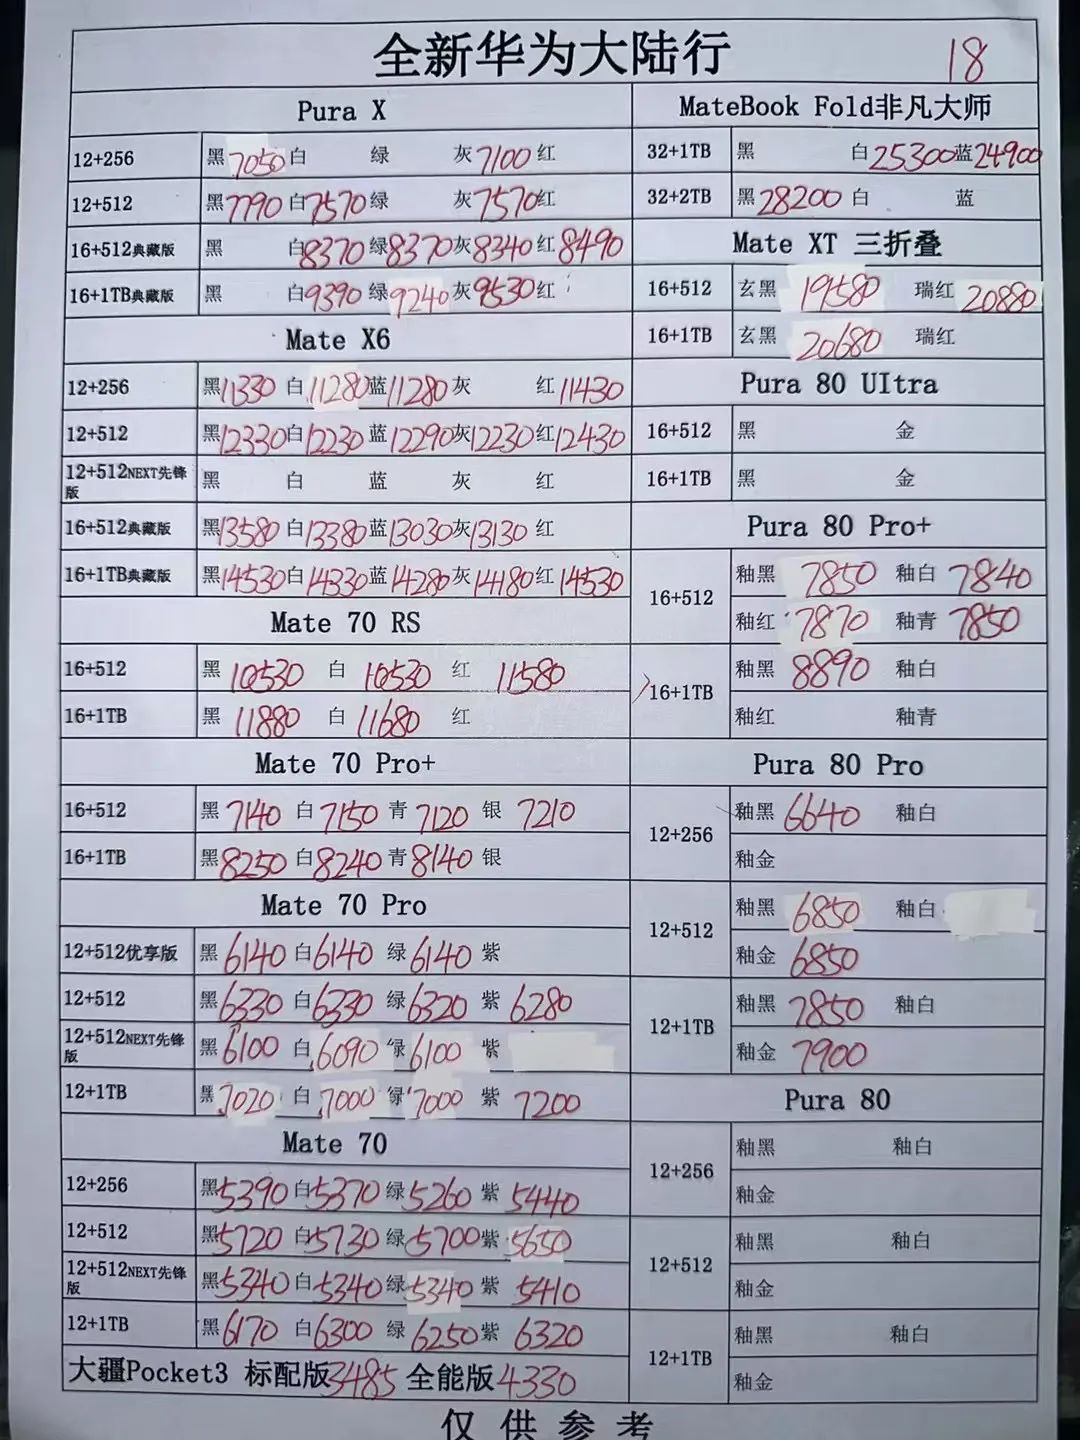 全新华为大陆行 18
Pura X
12+256 黑7050 白 绿 灰7100 红
12+512 黑7790 白7570 绿 灰7570 红
16+512典藏版 黑 白8370 绿8370 灰8340 红8490
16+1TB典藏版 黑 白9390 绿9240 灰9530 红
Mate X6
12+256 黑11330 白11280 蓝11280 灰 红11430
12+512 黑12330 白12230 蓝12290 灰12230 红12430
12+512NEXT先锋版 黑 白 蓝 灰 红
16+512典藏版 黑13580 白13380 蓝13030 灰13130 红
16+1TB典藏版 黑14530 白14330 蓝14280 灰14180 红14530
Mate 70 RS
16+512 黑 10530 白 10530 红 11580
16+1TB 黑 11880 白 11680 红
Mate 70 Pro+
16+512 黑 7140 白 7150 青 7120 银 7210
16+1TB 黑8250 白8240 青8140 银
Mate 70 Pro
12+512优享版 黑6140 白6140 绿6140 紫
12+512 黑6330 白6330 绿6320 紫6280
12+512NEXT先锋版 黑6100 白6090 绿6100 紫
12+1TB 黑7020 白7000 绿7000 紫7200
Mate 70
12+256 黑5390 白5370 绿5260 紫5440
12+512 黑5720 白5730 绿5700 紫5650
12+512NEXT先锋版 黑5340 白5340 绿5340 紫5410
12+1TB 黑6170 白6300 绿6250 紫6320
大疆Pocket3 标配版3485 全能版4330
MateBook Fold非凡大师
32+1TB 黑 白25300 蓝24900
32+2TB 黑28200 白 蓝
Mate XT 三折叠
16+512 玄黑 19580 瑞红 20880
16+1TB 玄黑 20680 瑞红
Pura 80 UItra
16+512 黑 金
16+1TB 黑 金
Pura 80 Pro+
16+512 釉黑 7850 釉白 7840
釉红 7870 釉青 7850
16+1TB 釉黑 8890 釉白
釉红 釉青
Pura 80 Pro
12+256 釉黑 6640 釉白
釉金
12+512 釉黑 6850 釉白
釉金 6850
12+1TB 釉黑 7850 釉白
釉金 7900
Pura 80
12+256 釉黑 釉白
釉金
12+512 釉黑 釉白
釉金
12+1TB 釉黑 釉白
釉金
仅供参考